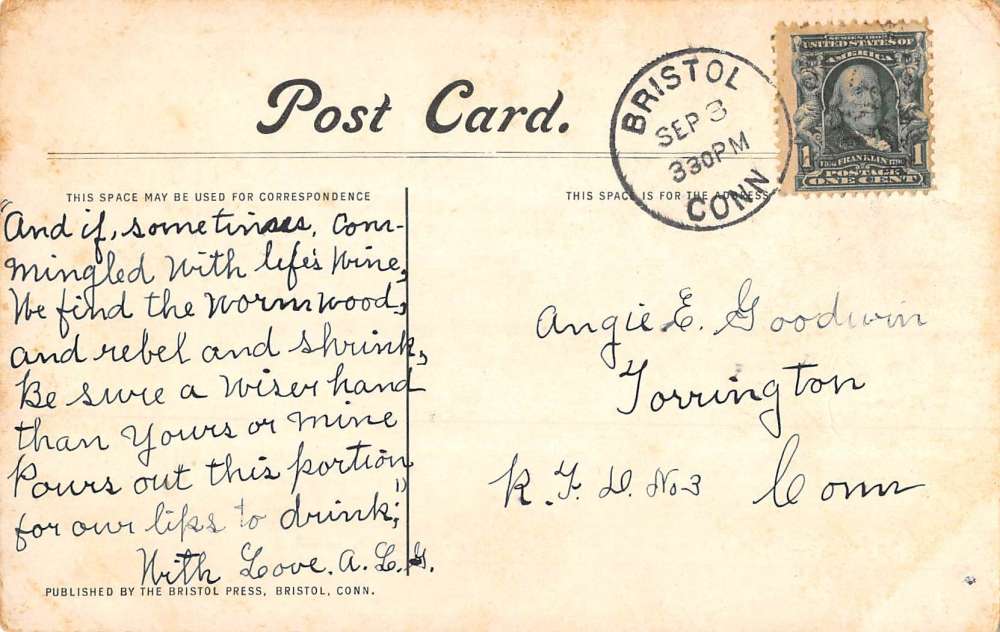 Post Card.
BRISTOL
SEP 3
330PM
CONN
SERIES 1902
UNITED STATES OF
AMERICA
1 FRANKLIN 1
POSTAGE
ONE CENT
THIS SPACE MAY BE USED FOR CORRESPONDENCE
THIS SPACE IS FOR THE ADDRESS
"And if, sometimes, com-
mingled with life's wine,
We find the wormwood,
and rebel and shrink,
Be sure a wiser hand
than yours or mine
Pours out this portion
for our lips to drink;"
With Love. A. E. G.
Angie E. Goodwin
Torrington
R. F. D. No 3 Conn
PUBLISHED BY THE BRISTOL PRESS, BRISTOL, CONN.